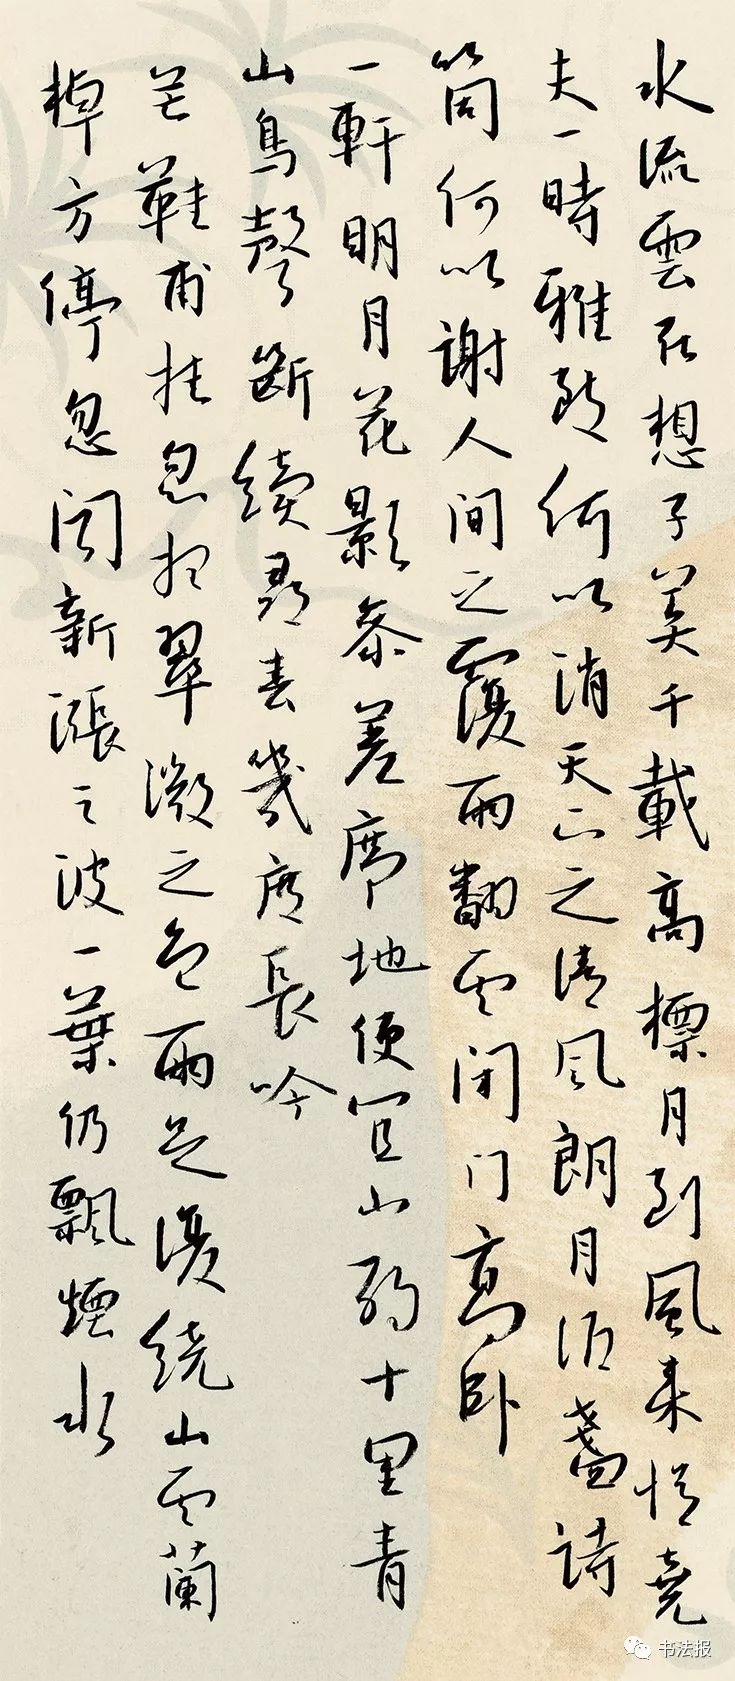 水流雲在想子美千載高標月到風來憶堯
夫一時雅致何以消天下之清風朗月酒盞詩
筒何以謝人間之覆雨翻云閉門高臥
一軒明月花影參差席地便宜小酌十里青
山鳥聲斷續尋春幾度長吟
芒鞋甫挂忽想翠微之色兩足復繞山云蘭
棹方停忽聞新漲之波一葉仍飄煙水
书法报